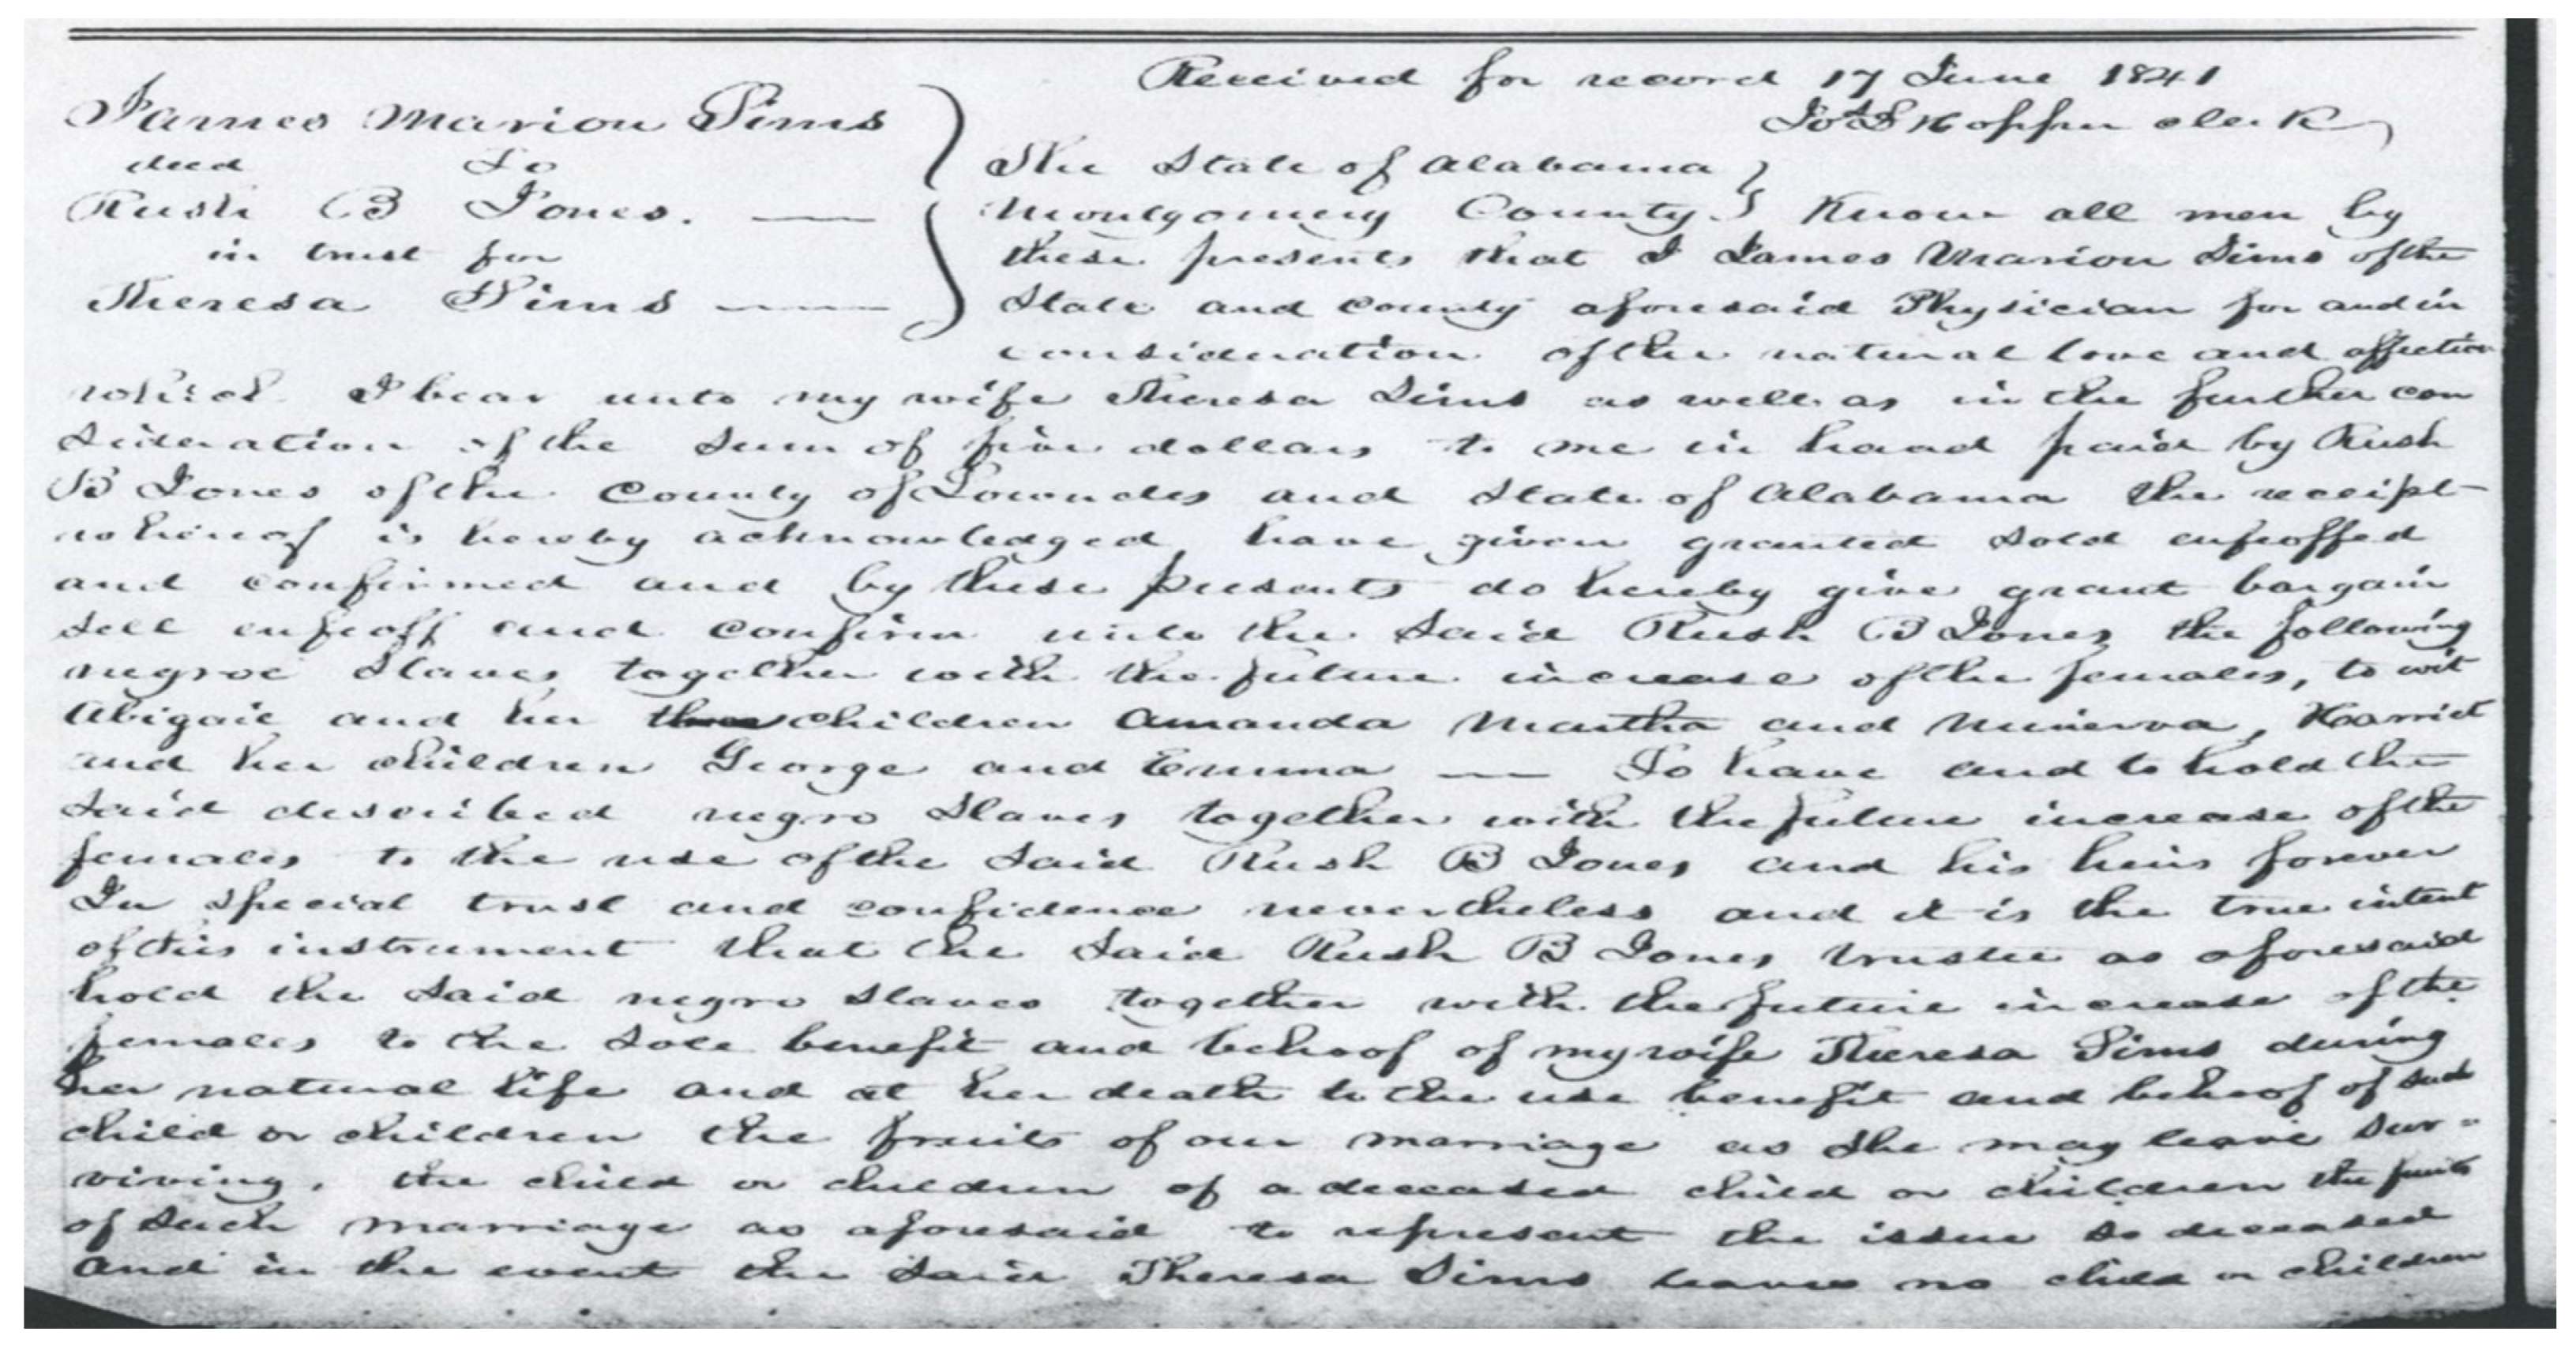 Received for record 17 June 1841
James Marion Sims
clerk
deed To
The State of Alabama
Rush B Jones.
Montgomery County Know all men by
in trust for
these presents that I James Marion Sims of the
Theresa Sims
State and County aforesaid Physician for and in
consideration of the natural love and affection
which I bear unto my wife Theresa Sims as well as in the further con
sideration of the sum of five dollars to me in hand paid by Rush
B Jones of the County of Lowndes and State of Alabama the receipt
whereof is hereby acknowledged have given granted sold enfeoffed
and confirmed and by these presents do hereby give grant bargain
sell enfeoff and confirm unto the said Rush B Jones the following
negroe slaves together with the future increase of the females, to wit
Abigail and her three children Amanda Martha and Minerva, Harriet
and her children George and Emma — To have and to hold the
said described negro slaves together with the future increase of the
females to the use of the said Rush B Jones and his heirs forever
In special trust and confidence nevertheless and it is the true intent
of this instrument that the said Rush B Jones trustee as aforesaid
hold the said negro slaves together with the future increase of the
females to the sole benefit and behoof of my wife Theresa Sims during
her natural life and at her death to the use benefit and behoof of such
child or children the fruits of our marriage as she may leave sur=
viving, the child or children of a deceased child or children the fruits
of such marriage as aforesaid to represent the issue so deceased
And in the event the said Theresa Sims leaves no child or children